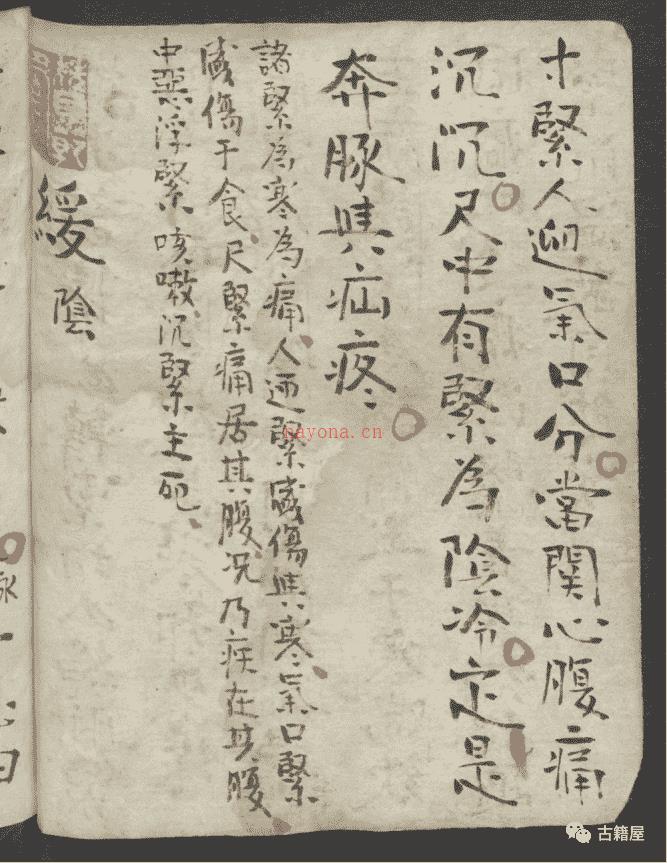 寸緊人迎氣口分當関心腹痛
沉沉尺中有緊為陰冷定是
奔豚與疝疼
諸緊為寒為痛人迎緊盛傷與寒氣口緊
盛傷于食尺緊痛居其腹况乃疾在其腹
中惡浮緊咳嗽沉緊主死
緩陰
nayona.cn
古籍屋